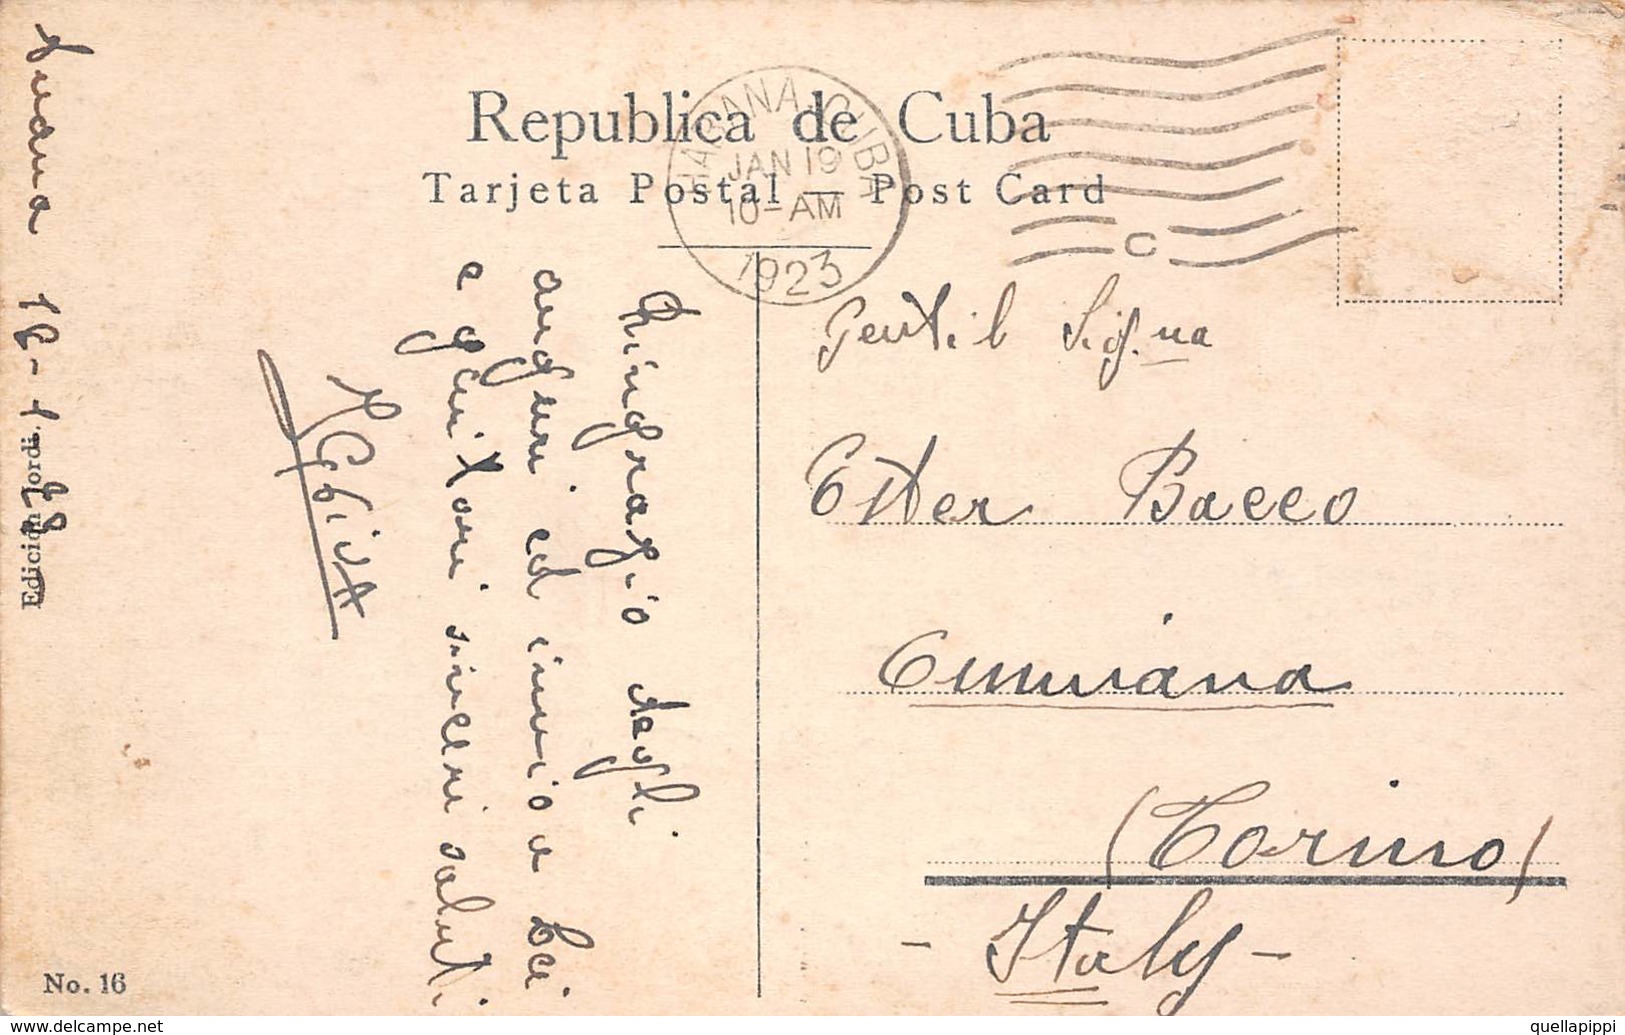 Republica de Cuba
Tarjeta Postal — Post Card
HABANA, CUBA
JAN 19
10-AM
1923
C
Gentil Sig.na
Ester Bacco
Cumiana
(Torino)
- Italy -
Ringrazio degli
auguri ed invio a Lei
e genitori sinceri saluti
Edición Jordi.
No. 16
www.delcampe.net
quellapippi